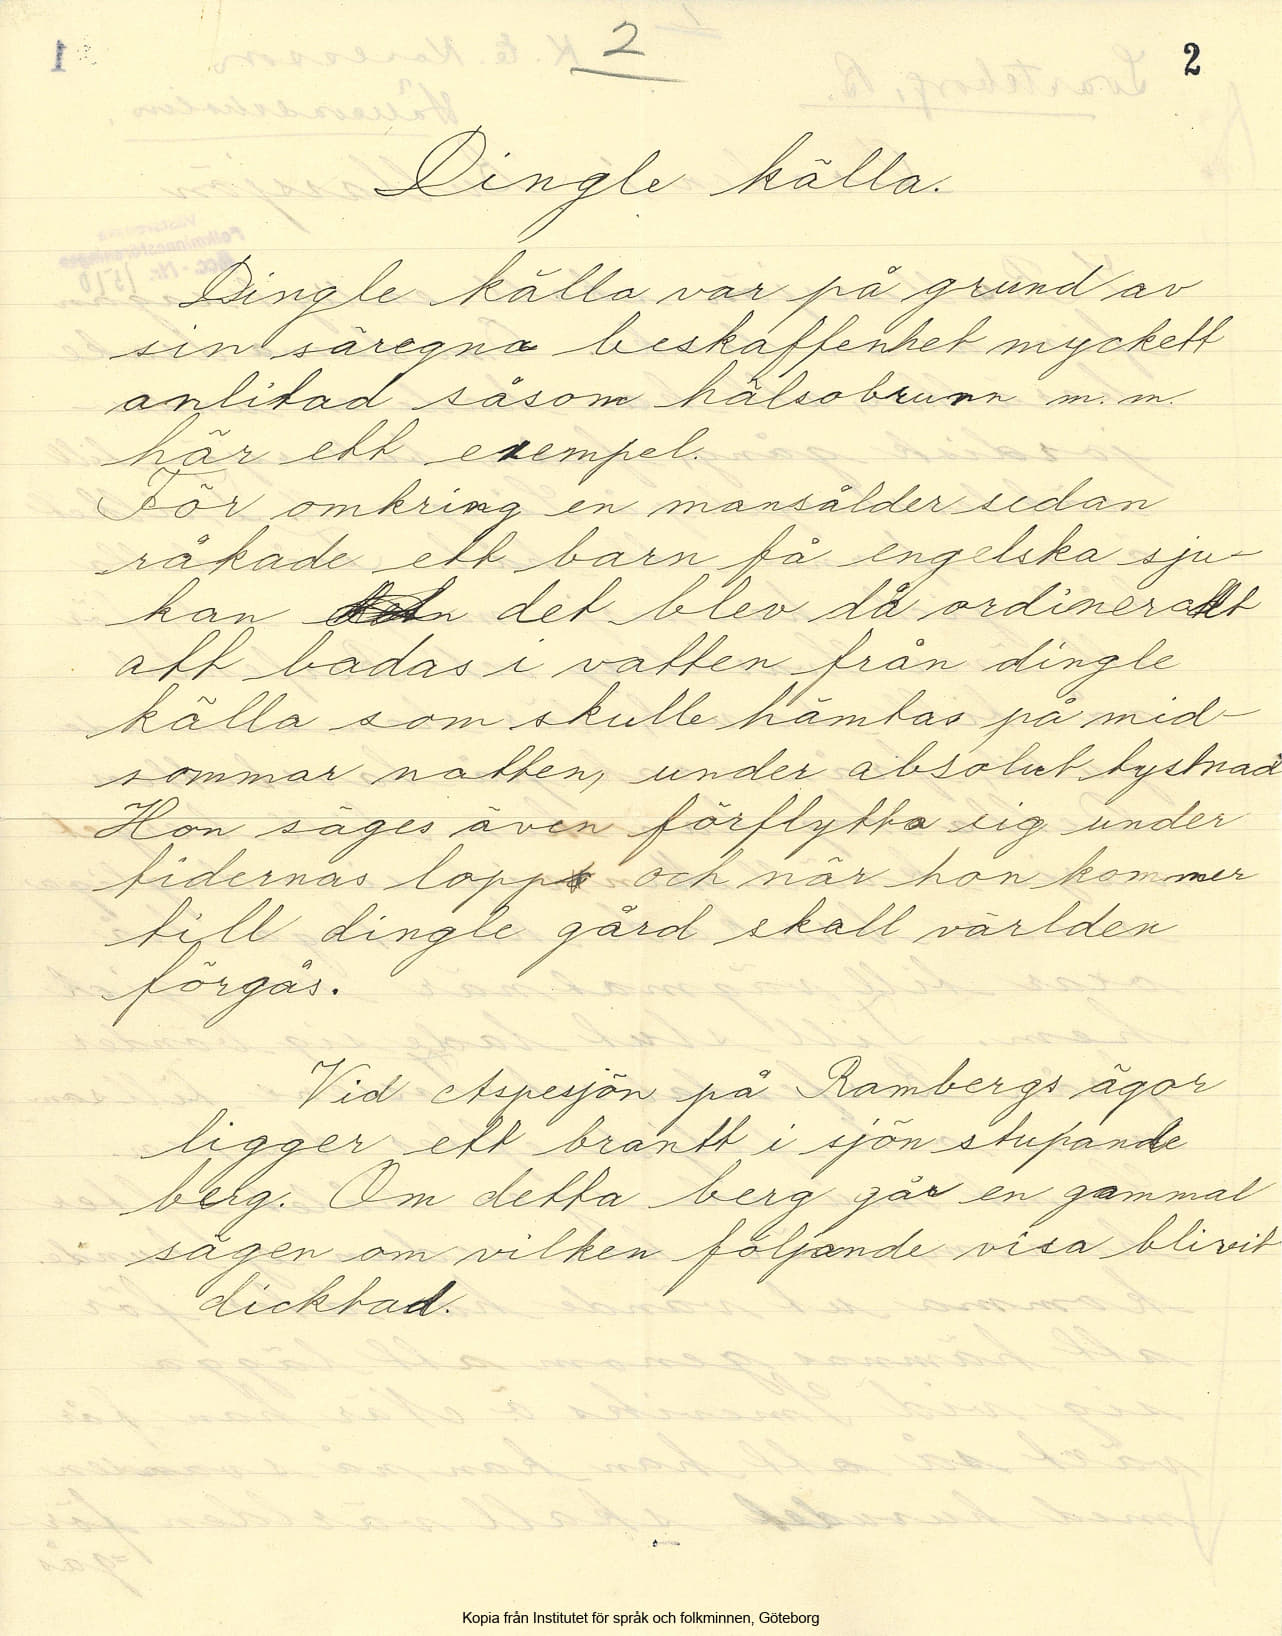 2
2
Dingle källa.
Dingle källa var på grund av
sin säregna beskaffenhet myckett
anlitad såsom hälsobrunn m. m.
här ett exempel.
För omkring en mansålder sedan
råkade ett barn få engelska sju-
kan det blev då ordinerat
att badas i vatten från dingle
källa som skulle hämtas på mid-
sommar natten, under absolut tystnad
Hon säges även förflytta sig under
tidernas lopp och när hon kommer
till dingle gård skall världen
förgås.
Vid Aspesjön på Rambergs ägor
ligger ett brantt i sjön stupande
berg. Om detta berg går en gammal
sägen om vilken följande visa blivit
dicktad.
Kopia från Institutet för språk och folkminnen, Göteborg